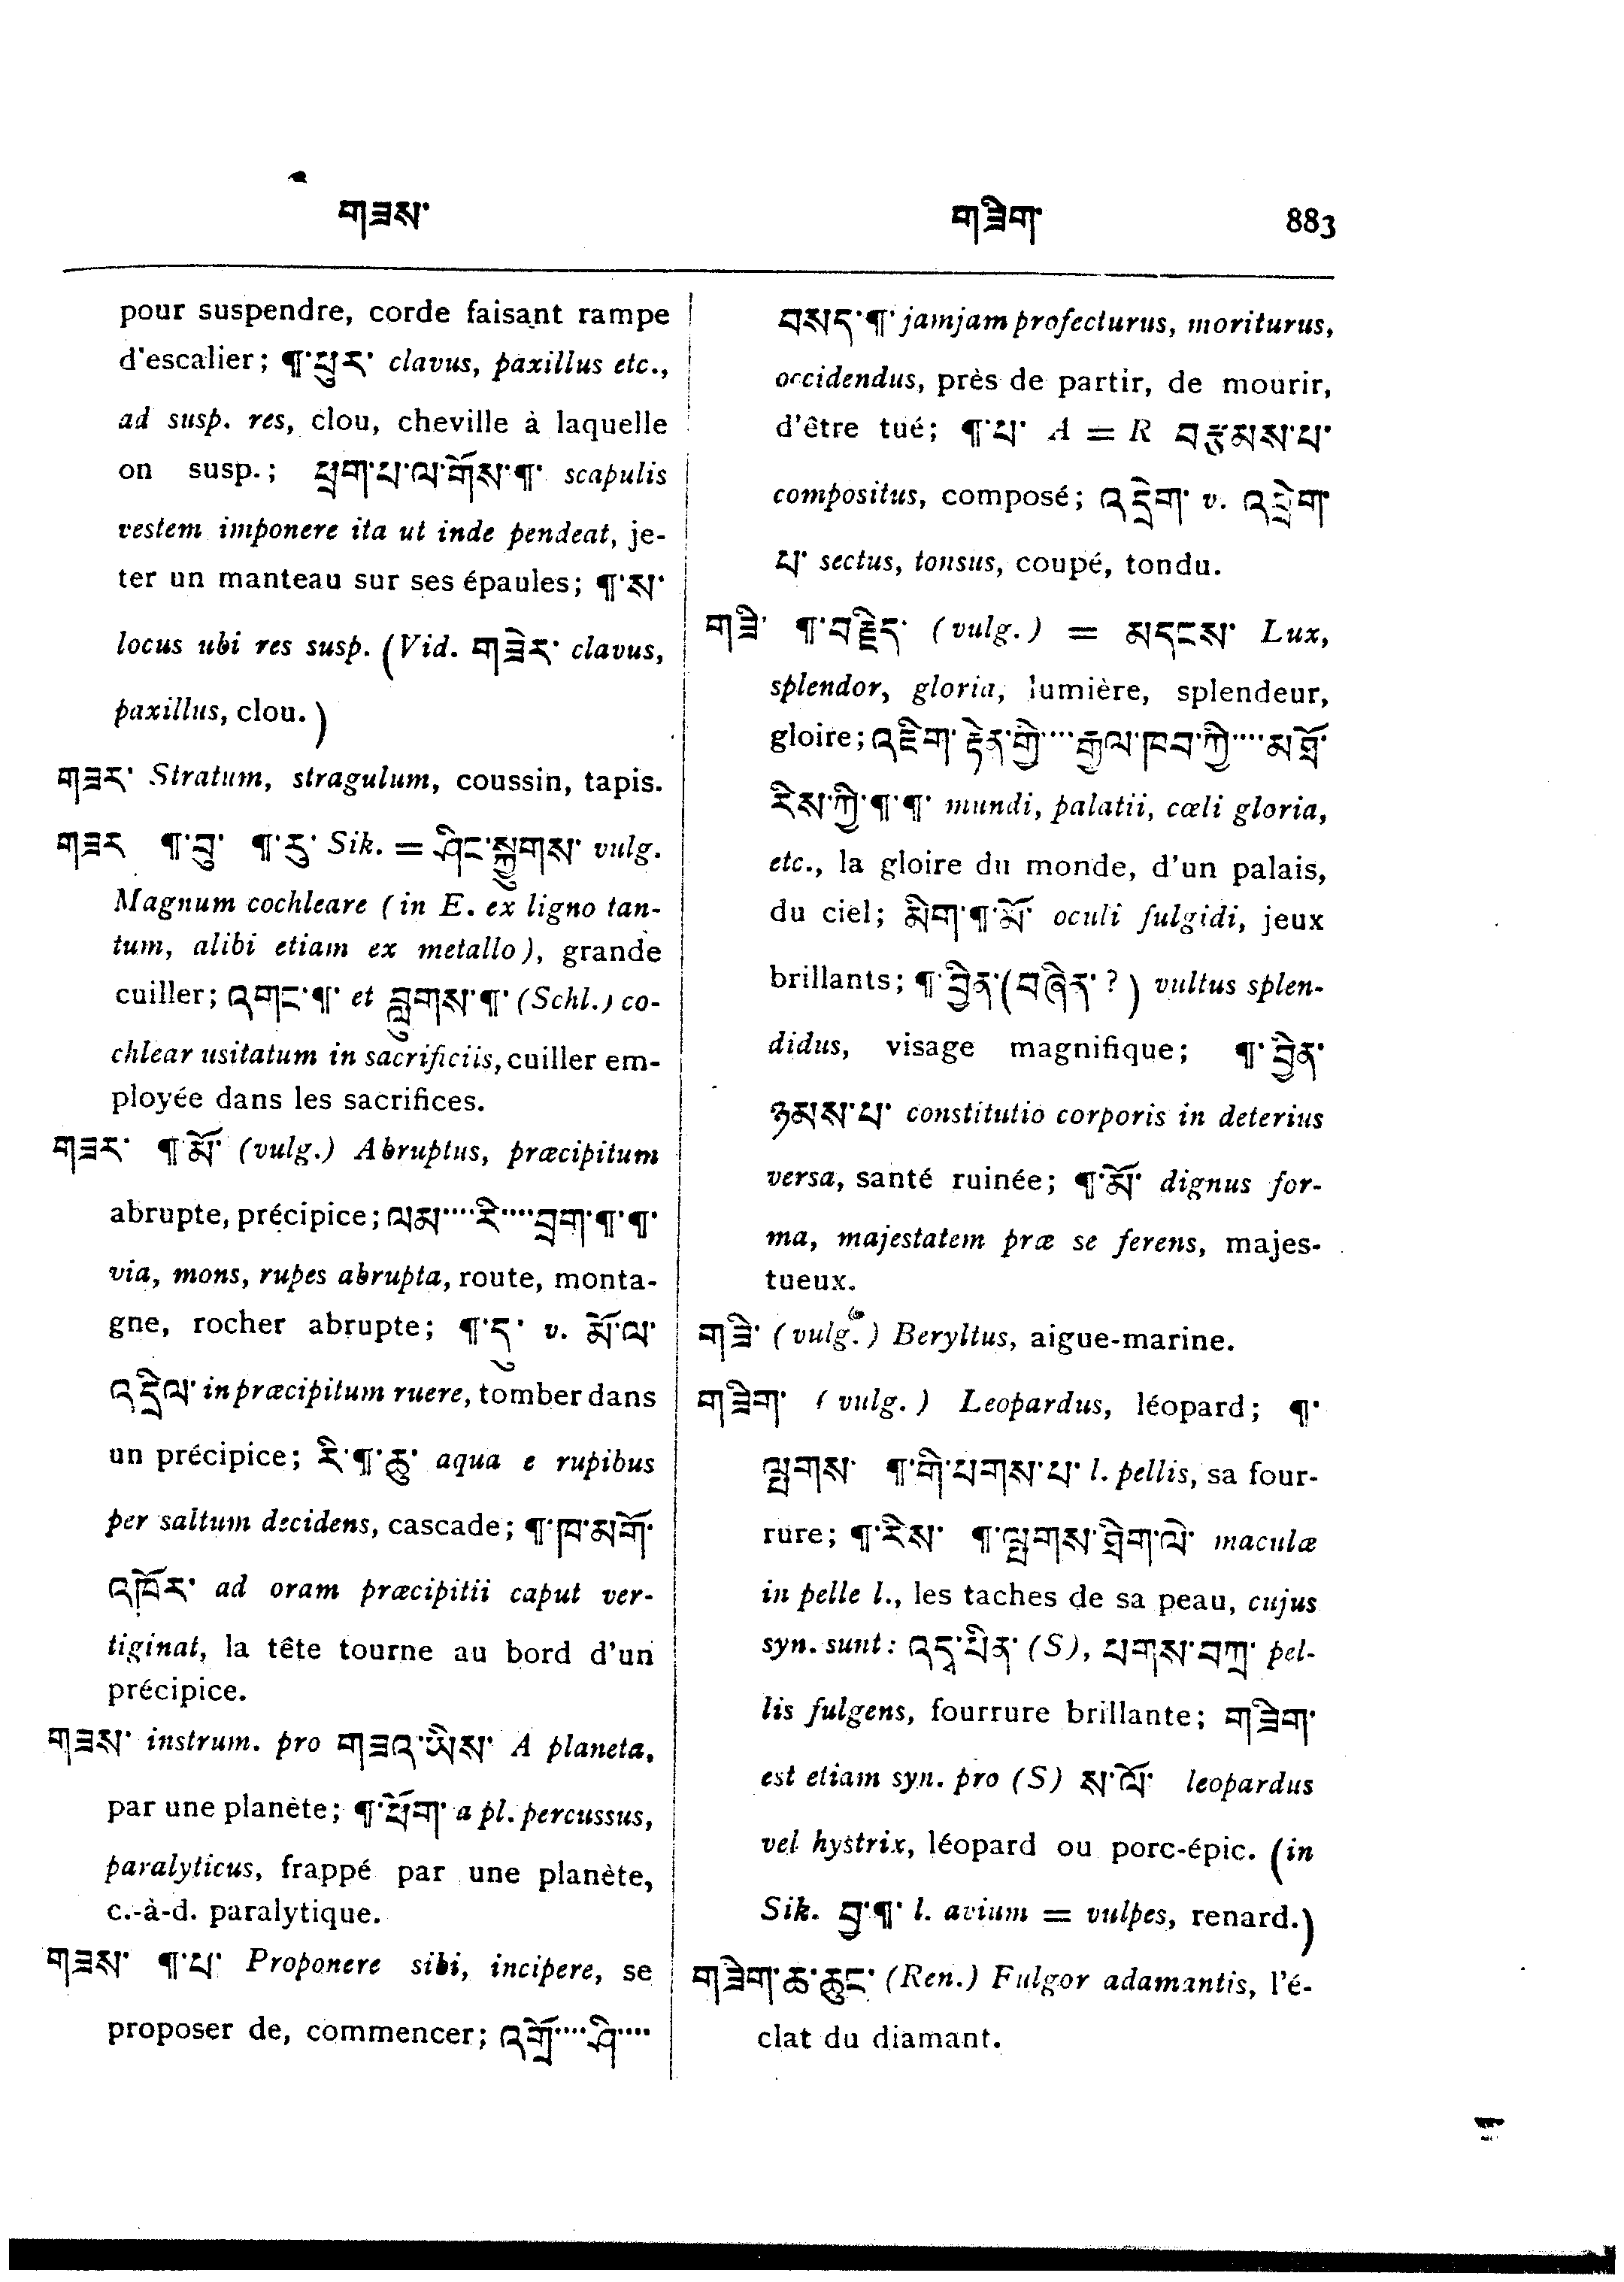 གཟས་ གཟིག་ 883
pour suspendre, corde faisant rampe
d'escalier; ¶་ཕུར་ clavus, paxillus etc.,
ad susp. res, clou, cheville à laquelle
on susp.; ཕྲག་པ་ལ་གོས་¶་ scapulis
vestem imponere ita ut inde pendeat, je-
ter un manteau sur ses épaules; ¶་ས་
locus ubi res susp. (Vid. གཟེར་ clavus,
paxillus, clou.)
གཟར་ Stratum, stragulum, coussin, tapis.
གཟར ¶་བུ་ ¶་རུ་ Sik. = ཤིང་སྐྱུགས་ vulg.
Magnum cochleare (in E. ex ligno tan-
tum, alibi etiam ex metallo), grande
cuiller; འགང་¶་ et བླུགས་¶་ (Schl.) co-
chlear usitatum in sacrificiis, cuiller em-
ployée dans les sacrifices.
གཟར་ ¶་མོ་ (vulg.) Abruptus, præcipitum
abrupte, précipice; ལམ་...་རི་...་བྲག་¶་¶་
via, mons, rupes abrupta, route, monta-
gne, rocher abrupte; ¶་དུ་ v. མོ་ལ་
འདྲིལ་ in præcipitum ruere, tomber dans
un précipice; རི་¶་ཆུ་ aqua e rupibus
per saltum decidens, cascade; ¶་ཁ་མགོ་
འཁོར་ ad oram præcipitii caput ver-
tiginat, la tête tourne au bord d'un
précipice.
གཟས་ instrum. pro གཟའ་ཡིས་ A planeta,
par une planète; ¶་ཕོག་ a pl. percussus,
paralyticus, frappé par une planète,
c.-à-d. paralytique.
གཟས་ ¶་པ་ Proponere sibi, incipere, se
proposer de, commencer; འགྲོ་...་ཤི་...
བསད་¶་ jamjam profecturus, moriturus,
occidendus, près de partir, de mourir,
d'être tué; ¶་པ་ A = R བརྩམས་པ་
compositus, composé; འདྲེག་ v. འབྲེག་
པ་ sectus, tonsus, coupé, tondu.
གཟི་ ¶་བརྗིད་ (vulg.) = མདངས་ Lux,
splendor, gloria, lumière, splendeur,
gloire; འཇིག་རྟེན་གྱི་...་རྒྱལ་ཁབ་ཀྱི་...་མཐོ་
རིས་ཀྱི་¶་¶་ mundi, palatii, cœli gloria,
etc., la gloire du monde, d'un palais,
du ciel; མིག་¶་མོ་ oculi fulgidi, jeux
brillants; ¶་བྱིན་(བཞིན་?) vultus splen-
didus, visage magnifique; ¶་བྱིན་
ཉམས་པ་ constitutio corporis in deterius
versa, santé ruinée; ¶་མོ་ dignus for-
ma, majestatem præ se ferens, majes-
tueux.
གཟི་ (vulg.) Beryltus, aigue-marine.
གཟིག་ (vulg.) Leopardus, léopard; ¶་
ལྤགས་ ¶་གི་པགས་པ་ l. pellis, sa four-
rure; ¶་རིས་ ¶་ལྤགས་ཐིག་ལེ་ maculæ
in pelle l., les taches de sa peau, cujus
syn. sunt: འདྭ་པིན་ (S), པགས་བཀྲ་ pel-
lis fulgens, fourrure brillante; གཟིག་
est etiam syn. pro (S) ས་ལོ་ leopardus
vel hystrix, léopard ou porc-épic. (in
Sik. བྱ་¶་ l. avium = vulpes, renard.)
གཟིག་ཆ་ཆུང་ (Ren.) Fulgor adamantis, l'é-
clat du diamant.